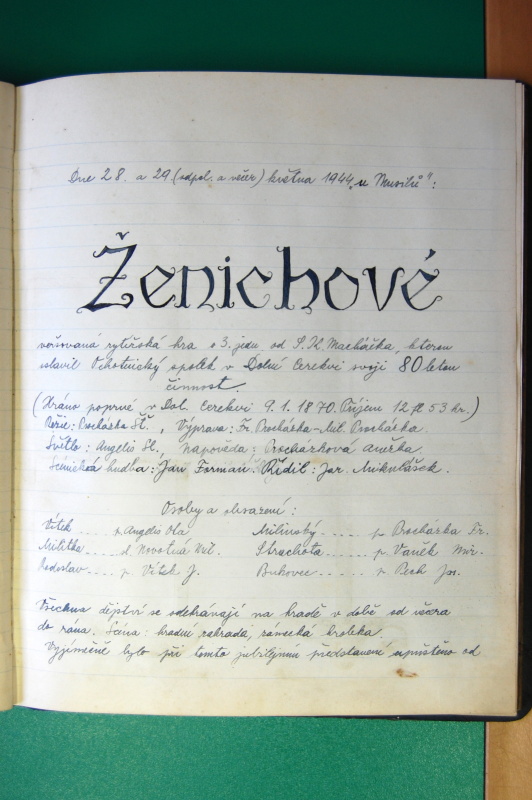 Dne 28. a 29 (odpol. a večer) května 1944 „u Musilů":
Ženichové
veršovaná rytířská hra o 3. jedn. od S. K. Macháčka, kterou
oslavil Ochotnický spolek v Dolní Cerekvi svoji 80 letou
činnost.
(Hráno poprvé v Dol. Cerekvi 9. 1. 1870. Příjem 12 fl 53 kr.)
Režie: Procházka St., Výprava: Fr. Procházka - Mil. Procházka.
Světlo: Angelis Sl., Napověda: Procházková Anežka
Scénická hudba: Jan Forman. Řídil: Jar. Mikulášek.
Osoby a obsazení:
Vítek .... p. Angelis Ola Milinský ..... p. Procházka Fr.
Militka .... sl. Novotná Lid. Strachota ..... p. Vaněk Mir.
Radoslav .... p. Vítek J. Bukovec ..... p. Pech Jos.
Všechna dějství se odehrávají na hradě v době od večera
do rána. Scéna: hradní zahrada, zámecká hrobka.
Vyjímečně bylo při tomto jubilejním představení upuštěno od